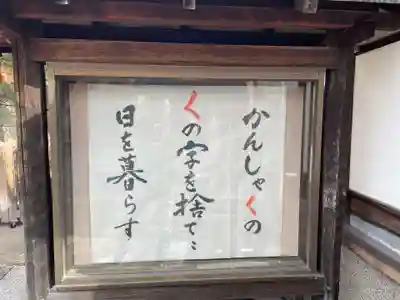 かんしゃくの
くの字を捨て
日を暮らす